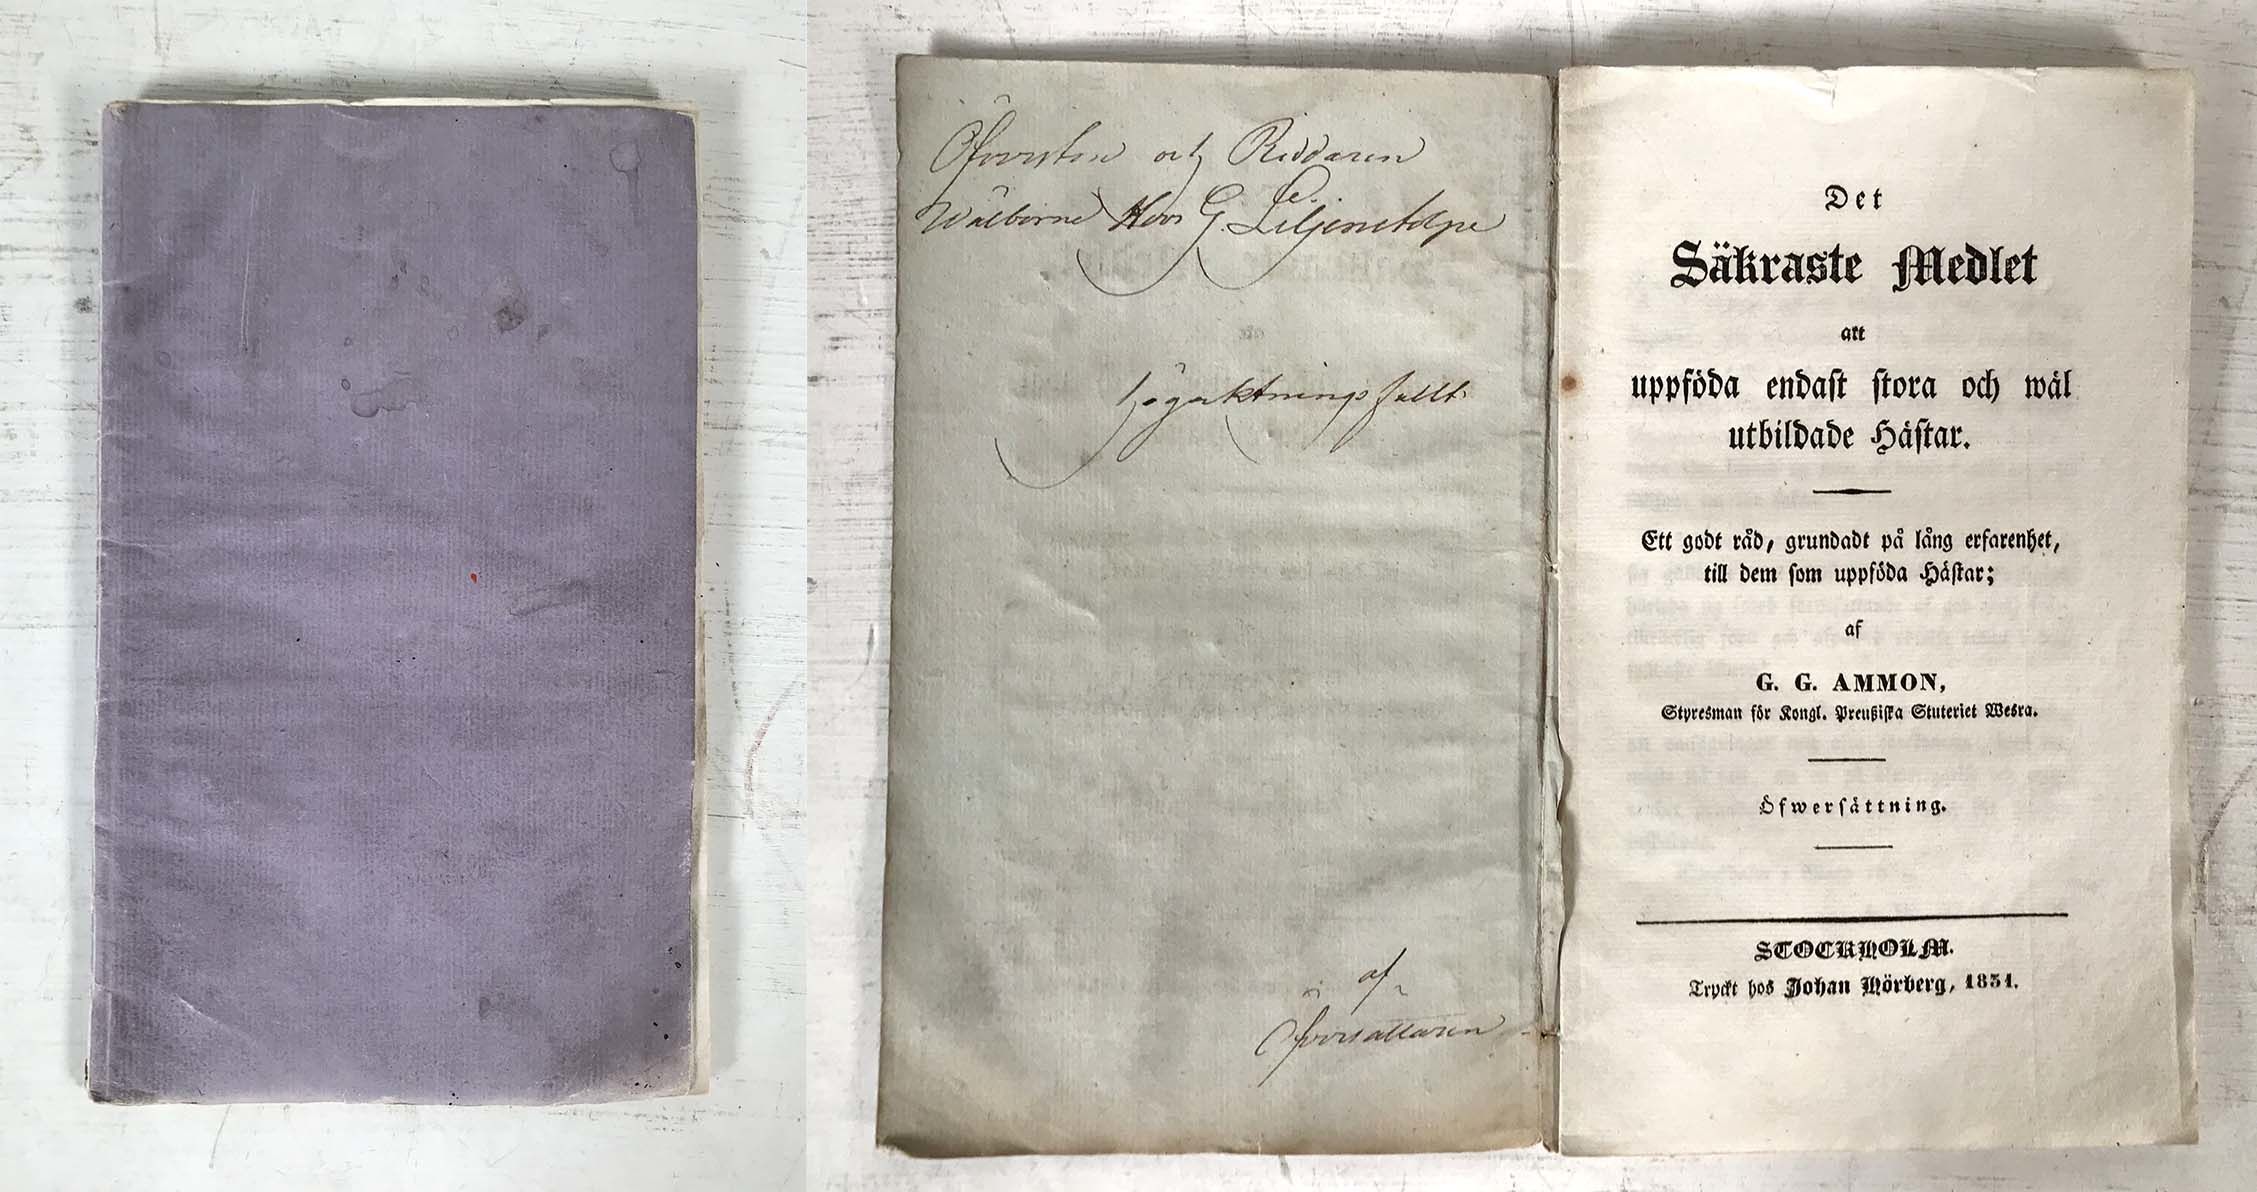 Öfversten och Riddaren
Wälborne Herr G. Liljenstolpe
högaktningsfullt
af
Öfversättaren
Det
Säkraste Medlet
att
uppföda endast stora och wäl
utbildade Hästar.
Ett godt råd, grundadt på lång erfarenhet,
till dem som uppföda Hästar;
af
G. G. AMMON,
Styresman för Kongl. Preußiska Stuteriet Wesra.
Öfwersättning.
STOCKHOLM.
Tryckt hos Johan Hörberg, 1831.